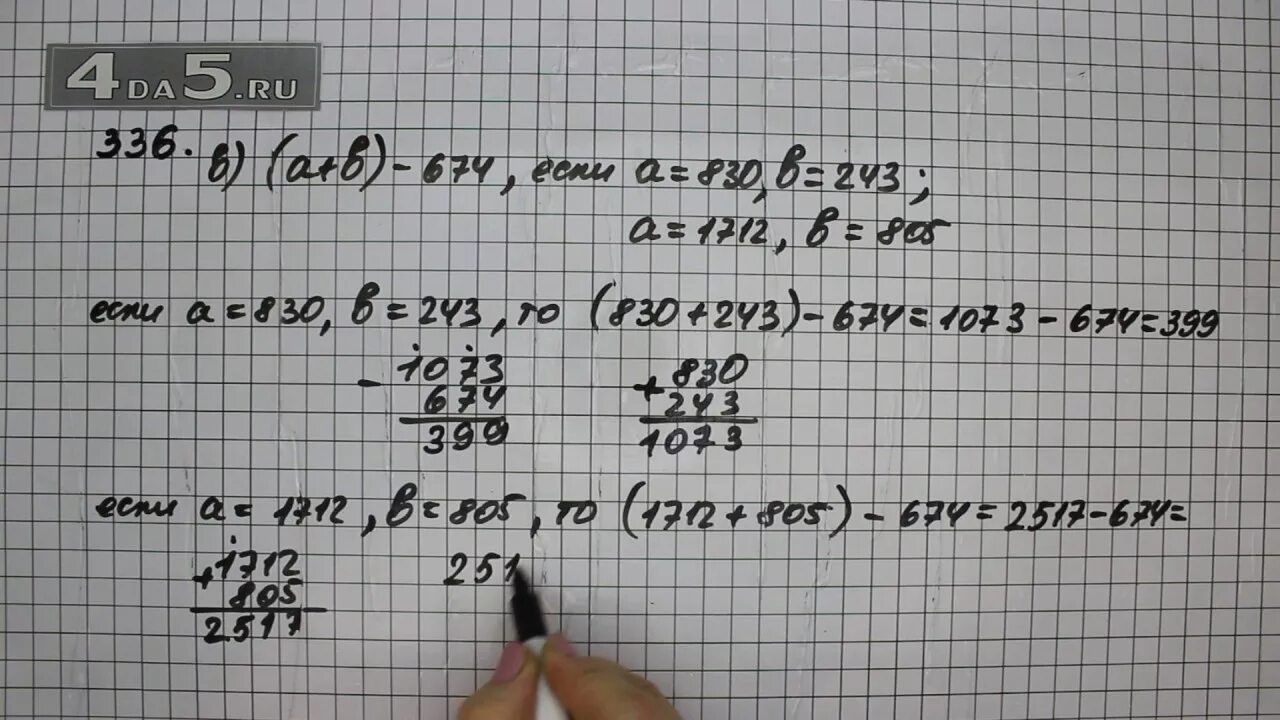 4DA5.RU
336. в) (а+в)-674, если а=830, в=243;
а=1712, в=805
если а=830, в=243, то (830+243)-674=1073-674=399
- 1073
674
399
+ 830
243
1073
если а=1712, в=805, то (1712+805)-674=2517-674=
+ 1712
805
2517
251